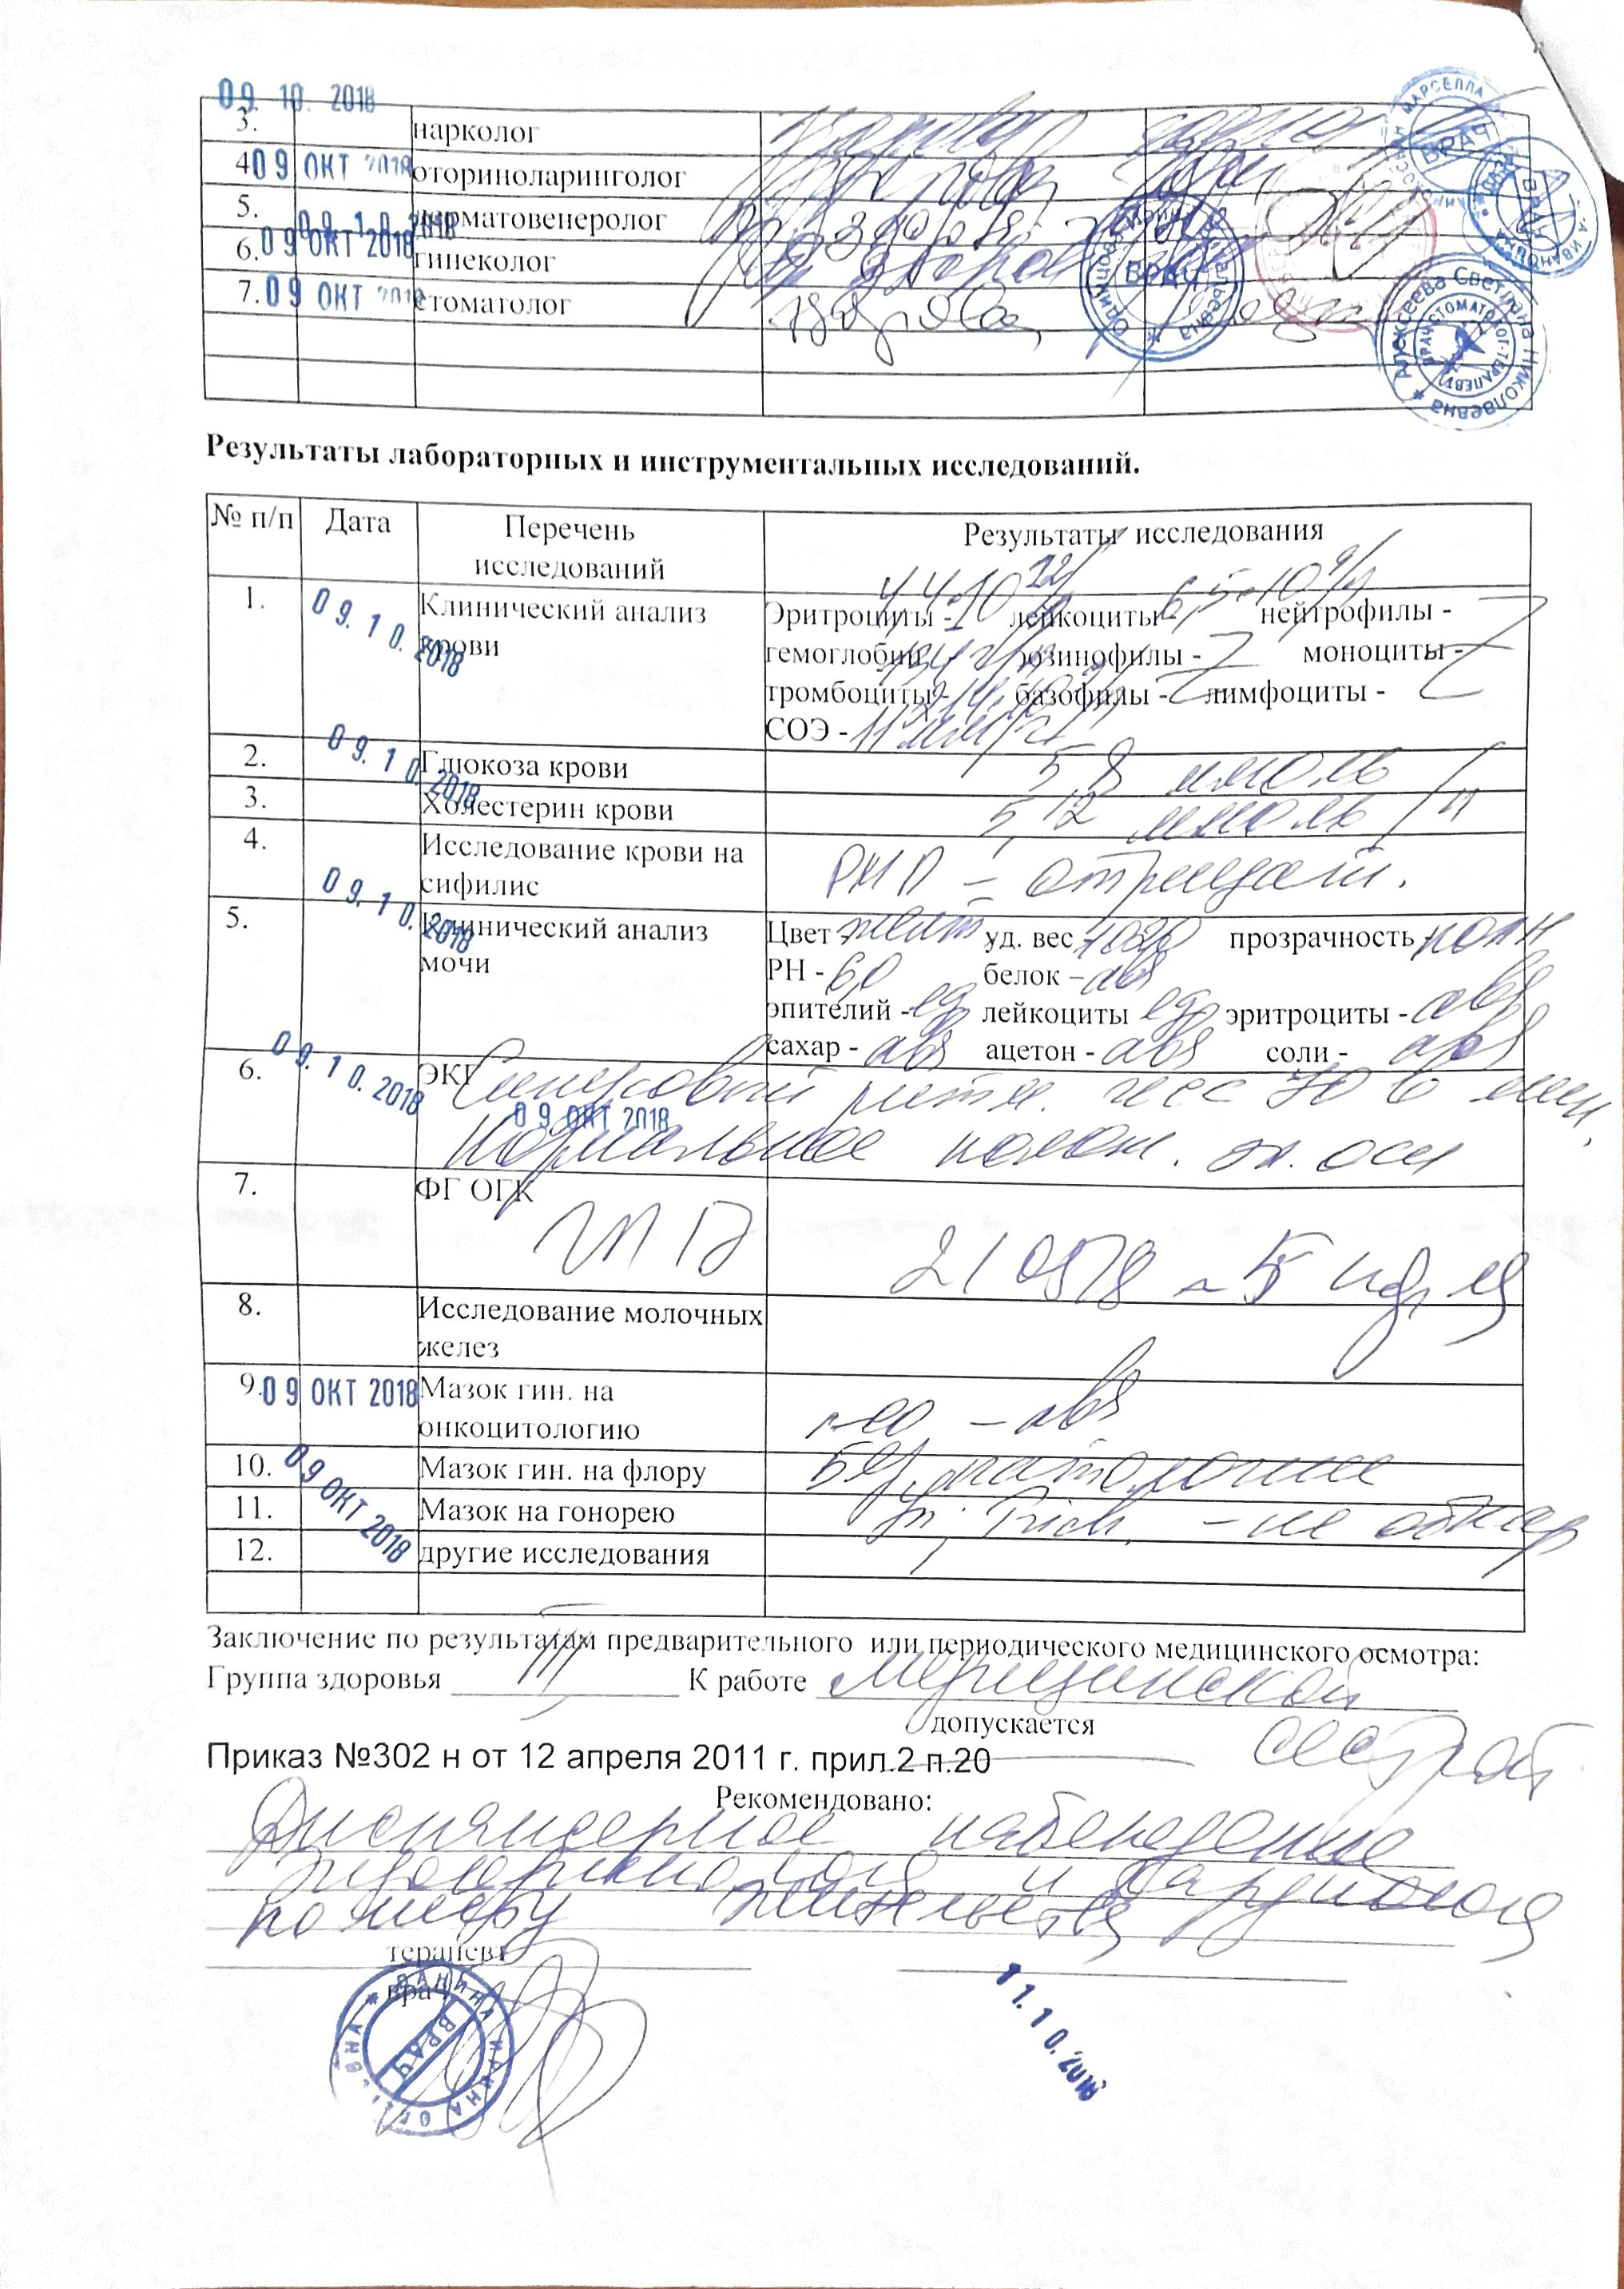 09. 10. 2018
3. нарколог
4. 09 ОКТ 2018 оториноларинголог
5. 09.10.2018 дерматовенеролог
6. 09 ОКТ 2018 гинеколог здорова
7. 09 ОКТ 2018 стоматолог здорова
МАРСЕЛЛА ВРАЧ
ВРАЧ ИВАНОВНА
ВРАЧ
Алексеева Светлана Николаевна ВРАЧ СТОМАТОЛОГ-ТЕРАПЕВТ
Результаты лабораторных и инструментальных исследований.
№ п/п Дата Перечень исследований Результаты исследования
1. 09.10.2018 Клинический анализ крови
Эритроциты - 4,4·10 12/л лейкоциты - 6,5·10 9/л нейтрофилы -
гемоглобин - г/л эозинофилы - моноциты -
тромбоциты - базофилы - лимфоциты -
СОЭ - 11 мм/ч
2. 09.10.2018 Глюкоза крови 5,8 ммоль/л
3. Холестерин крови 5,12 ммоль/л
4. Исследование крови на сифилис РМП – отрицат.
5. 09.10.2018 Клинический анализ мочи
Цвет - желт уд. вес - 1020 прозрачность - полн
РН - 6,0 белок – abs
эпителий - ед лейкоциты ед эритроциты - abs
сахар - abs ацетон - abs соли - abs
6. 09.10.2018 ЭКГ Синусовый ритм. чсс 70 в мин.
09 ОКТ 2018
Нормальное полож. эл. оси
7. ФГ ОГК
8. Исследование молочных железез
9. 09 ОКТ 2018 Мазок гин. на онкоцитологию – abs
10. Мазок гин. на флору Без патологии
11. 09 ОКТ 2018 Мазок на гонорею Trich. – не обнар
12. другие исследования
Заключение по результатам предварительного или периодического медицинского осмотра:
Группа здоровья III К работе медицинской
допускается сестрой
Приказ №302 н от 12 апреля 2011 г. прил.2 п.20
Рекомендовано:
Диспансерное наблюдение
эндокринолога и кардиолога
по месту жительства
терапевт
врач
ПАНИНА ВРАЧ
11.10.2018